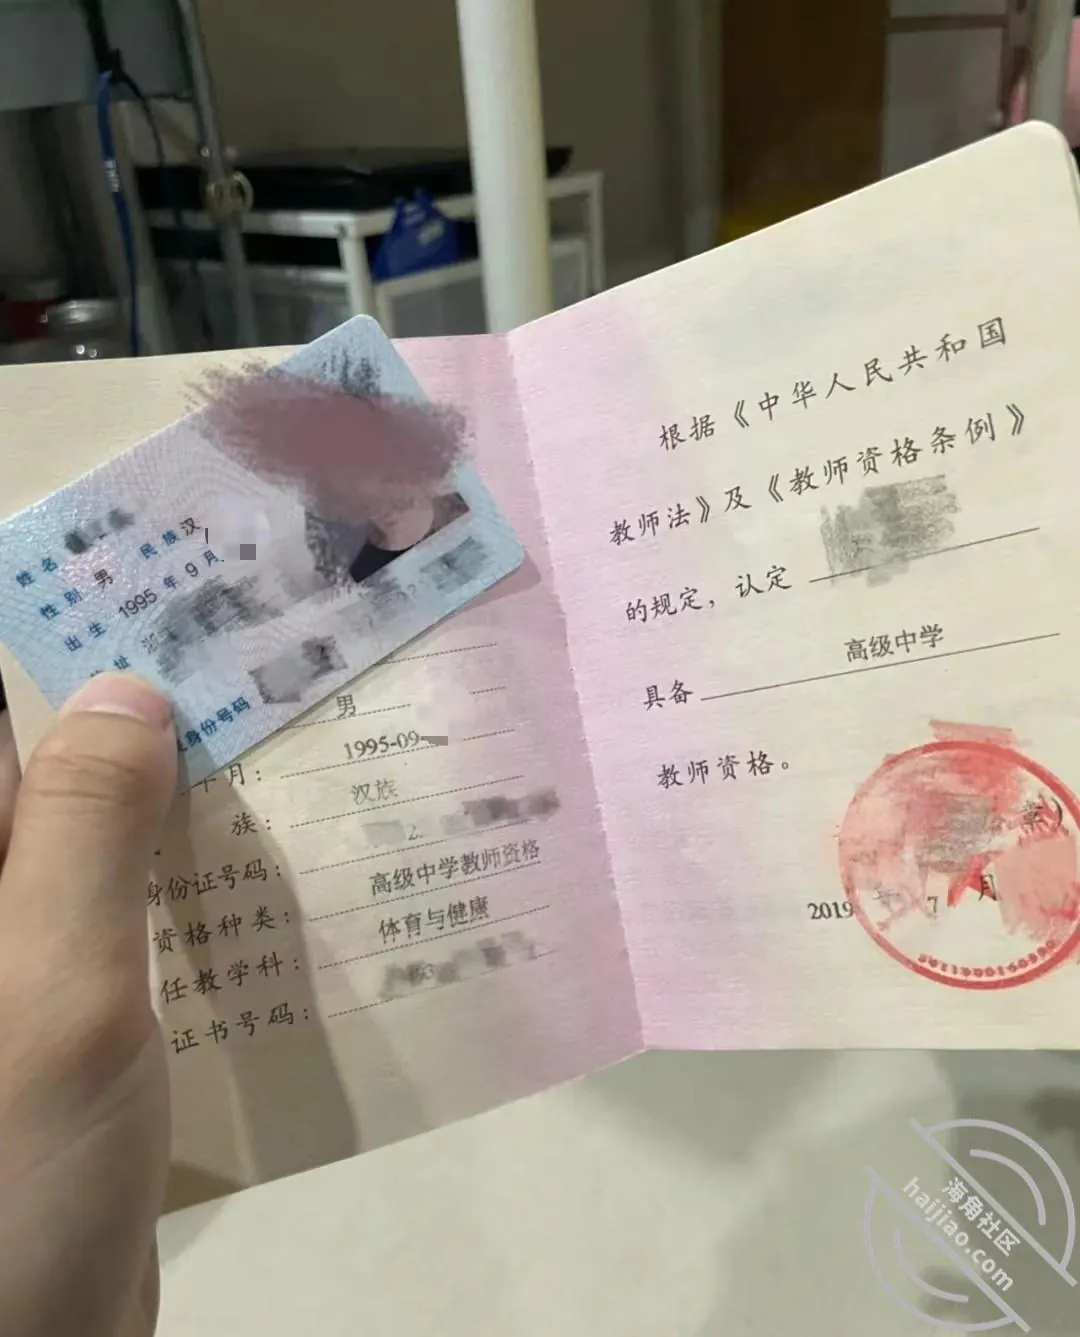 姓名
性别 男 民族 汉
出生 1995 年 9 月
址
身份号码
男
1995-09-
年月：
汉族
族：
身份证号码：
高级中学教师资格
资格种类：
体育与健康
任教学科：
证书号码：
根据《中华人民共和国
教师法》及《教师资格条例》
的规定，认定
高级中学
具备
教师资格。
2019 年 7 月
海角社区
haijiao.com